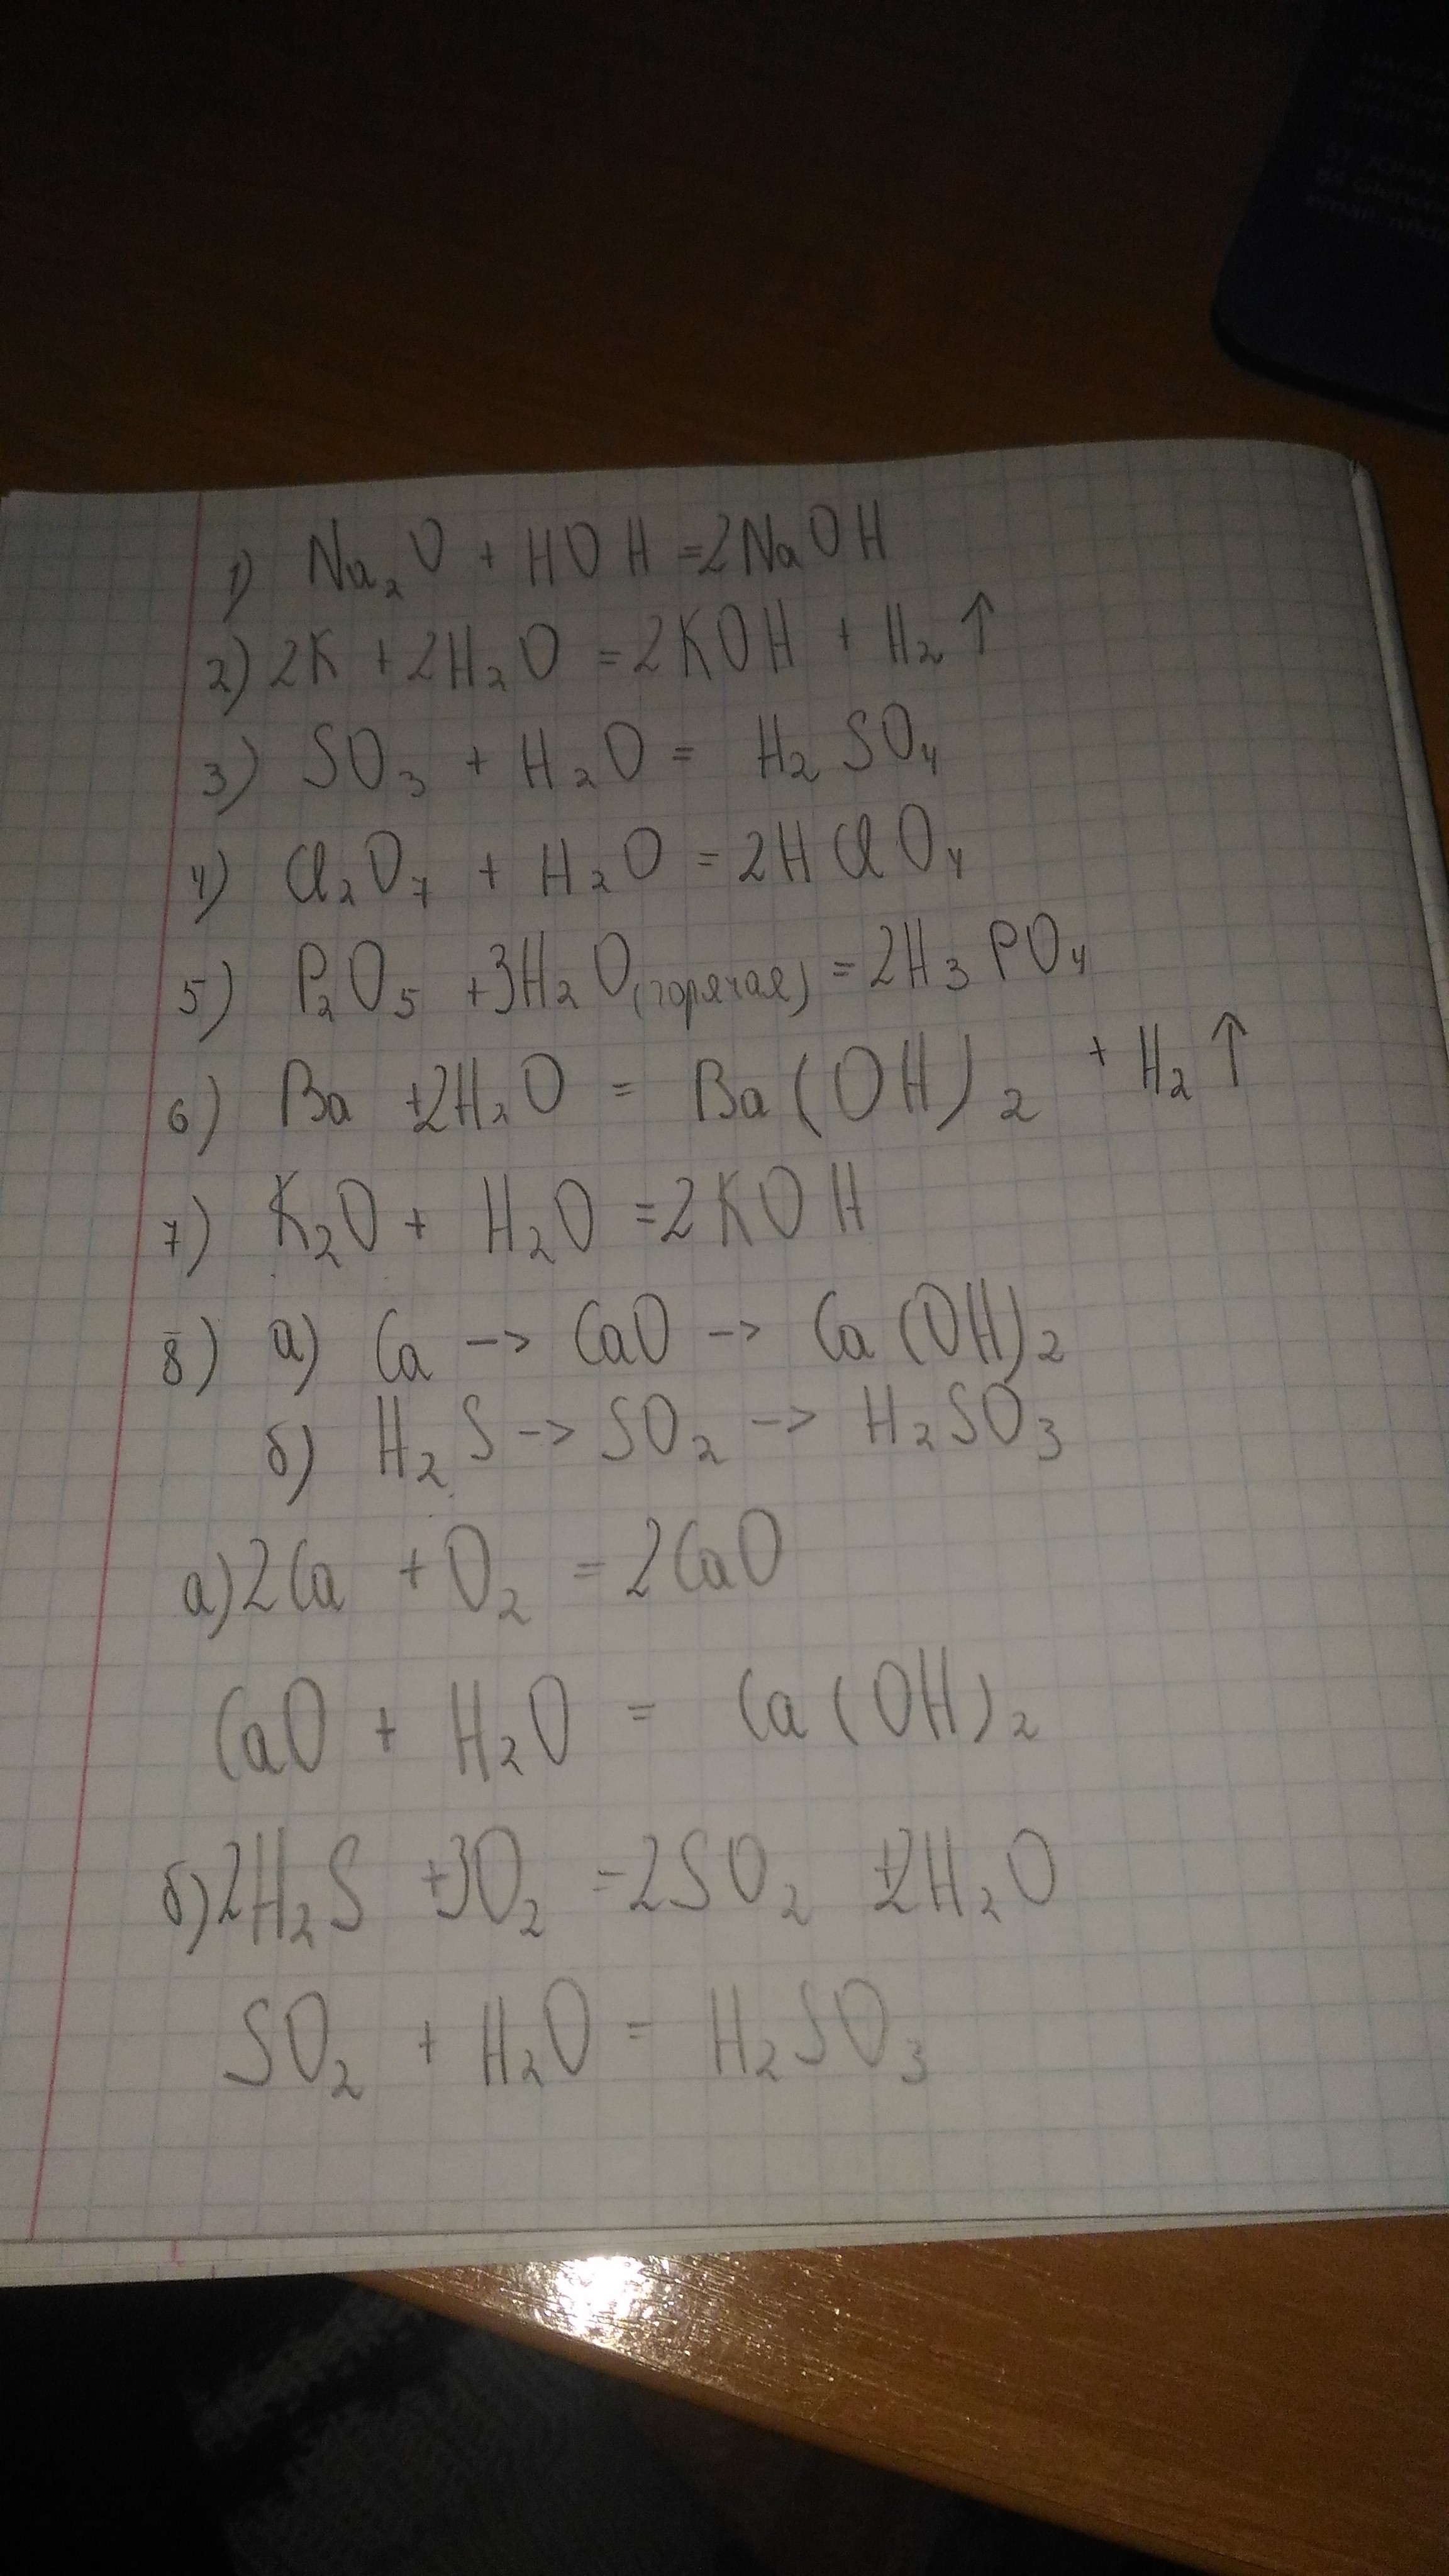 1) Na₂O + HOH = 2NaOH
2) 2K + 2H₂O = 2KOH + H₂↑
3) SO₃ + H₂O = H₂SO₄
4) Cl₂O₇ + H₂O = 2HClO₄
5) P₂O₅ + 3H₂O (горячая) = 2H₃PO₄
6) Ba + 2H₂O = Ba(OH)₂ + H₂↑
7) K₂O + H₂O = 2KOH
8) а) Ca -> CaO -> Ca(OH)₂
б) H₂S -> SO₂ -> H₂SO₃
а) 2Ca + O₂ = 2CaO
CaO + H₂O = Ca(OH)₂
б) 2H₂S + 3O₂ = 2SO₂ + 2H₂O
SO₂ + H₂O = H₂SO₃